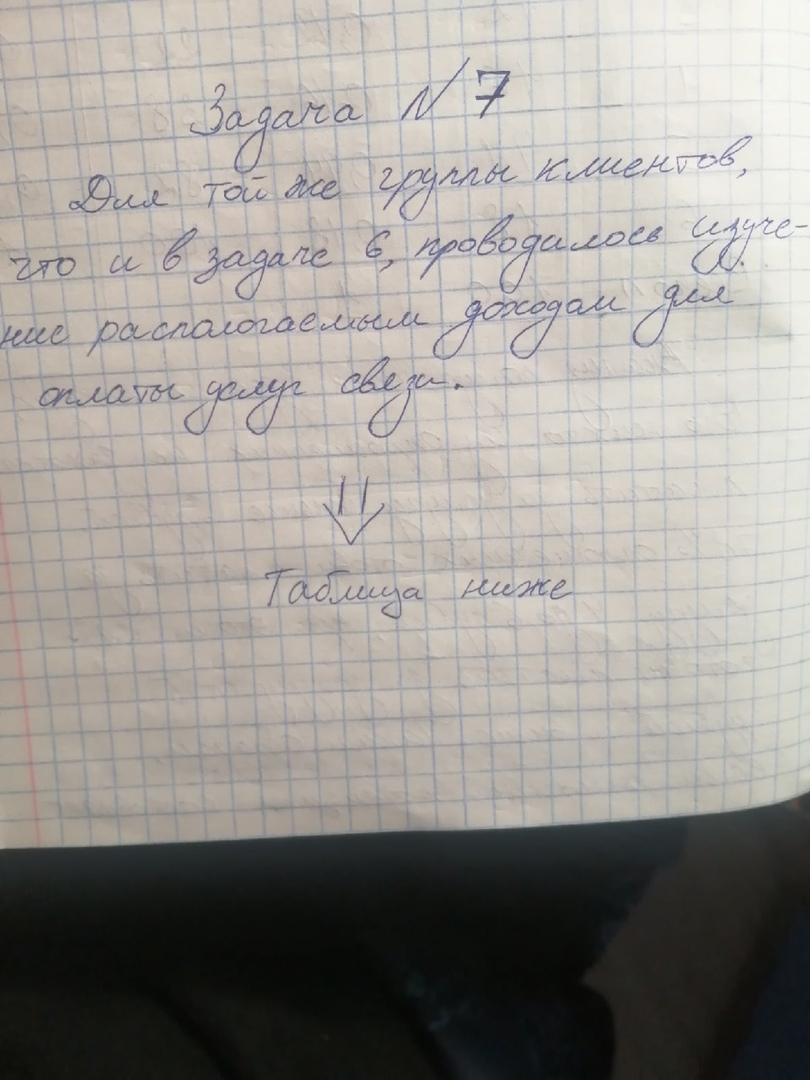 Задача №7
Для той же группы клиентов,
что и в задаче 6, проводилось изуче-
ние распологаемым доходам для
оплаты услуг связи.
Таблица ниже